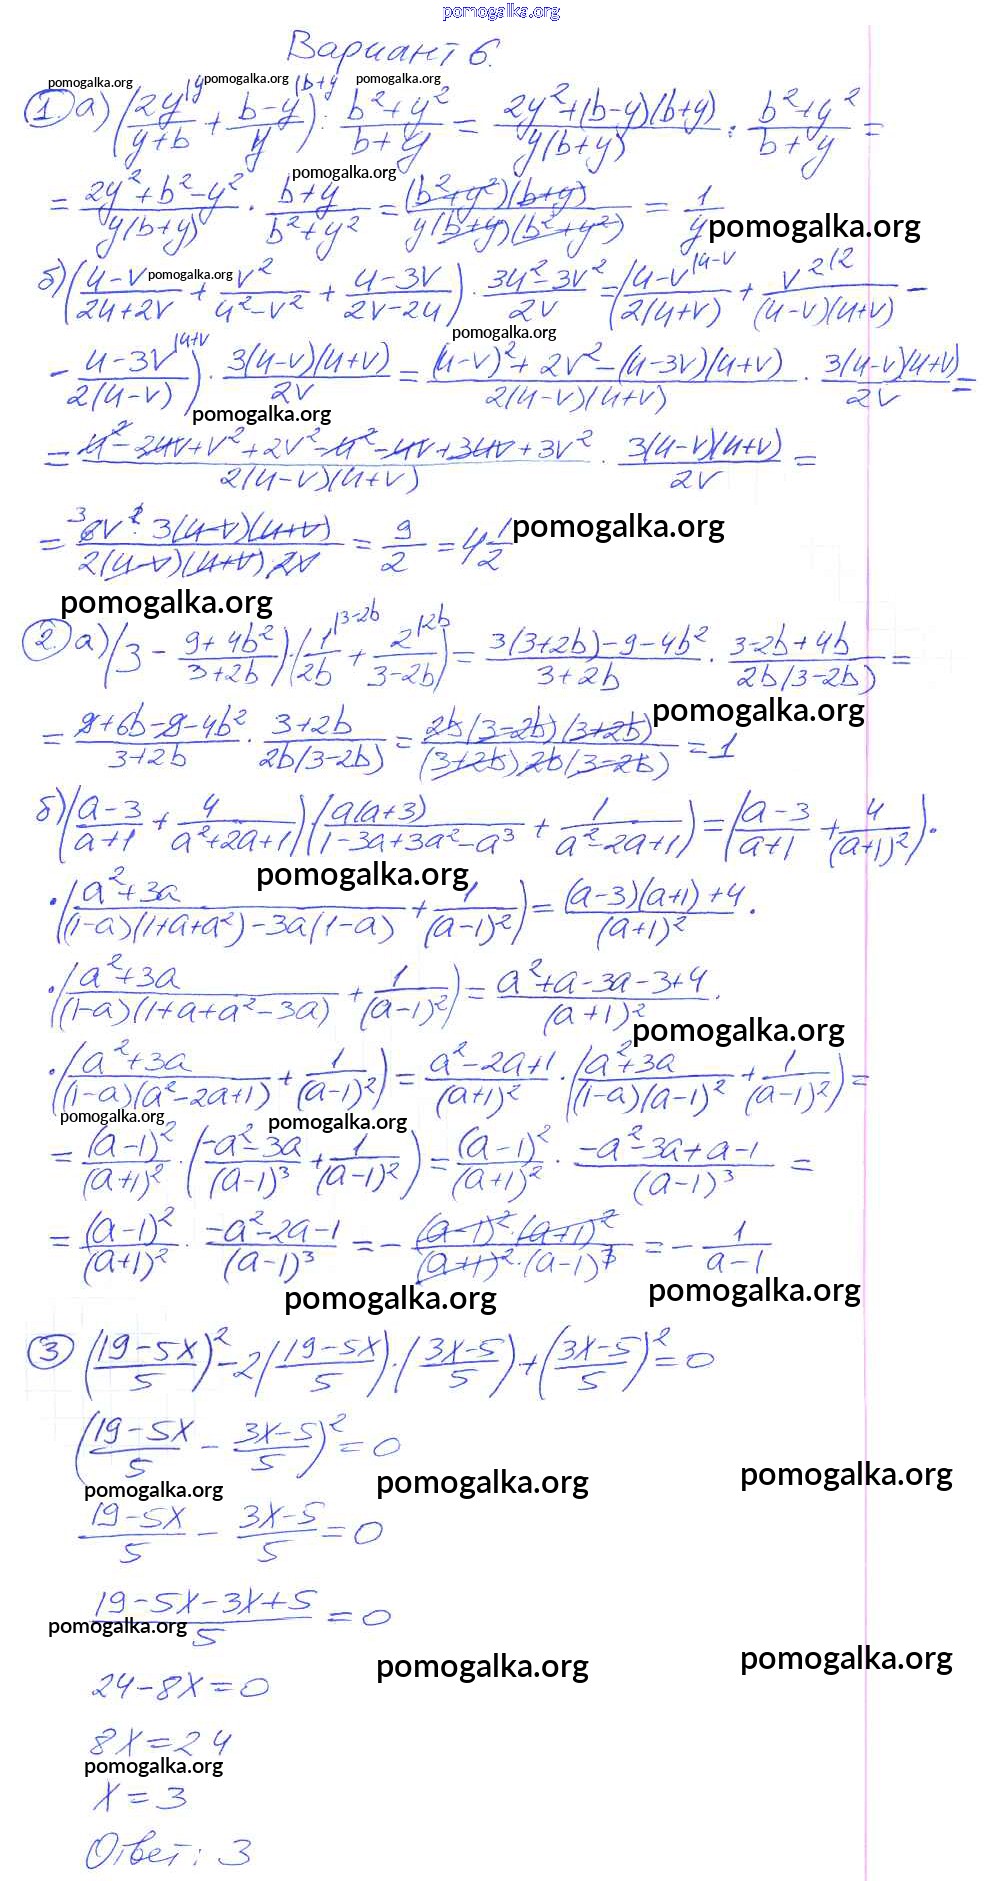 pomogalka.org
Вариант 6.
pomogalka.org pomogalka.org pomogalka.org
1 а) (2y|y/(y+b) + (b-y)|b+y/y) : (b²+y²)/(b+y) = (2y²+(b-y)(b+y))/(y(b+y)) : (b²+y²)/(b+y) =
pomogalka.org
= (2y²+b²-y²)/(y(b+y)) · (b+y)/(b²+y²) = ((b²+y²)(b+y))/(y(b+y)(b²+y²)) = 1/y
pomogalka.org
б) ((u-v)/(2u+2v) + v²/(u²-v²) + (u-3v)/(2v-2u)) · (3u²-3v²)/(2v) = ((u-v)|u-v/(2(u+v)) + v²|2/((u-v)(u+v)) -
pomogalka.org
pomogalka.org
- (u-3v)|u+v/(2(u-v))) · (3(u-v)(u+v))/(2v) = ((u-v)²+2v²-(u-3v)(u+v))/(2(u-v)(u+v)) · (3(u-v)(u+v))/(2v) =
pomogalka.org
= (u²-2uv+v²+2v²-u²-uv+3uv+3v²)/(2(u-v)(u+v)) · (3(u-v)(u+v))/(2v) =
= (6v²·3(u-v)(u+v))/(2(u-v)(u+v)·2v) = 9/2 = 4 1/2
pomogalka.org
pomogalka.org
2. а) (3 - (9+4b²)/(3+2b)) · (1|3-2b/(2b) + 2|2b/(3-2b)) = (3(3+2b)-9-4b²)/(3+2b) · (3-2b+4b)/(2b(3-2b)) =
pomogalka.org
= (9+6b-9-4b²)/(3+2b) · (3+2b)/(2b(3-2b)) = (2b(3-2b)(3+2b))/((3+2b)2b(3-2b)) = 1
б) ((a-3)/(a+1) + 4/(a²+2a+1)) (a(a+3)/(1-3a+3a²-a³) + 1/(a²-2a+1)) = ((a-3)/(a+1) + 4/(a+1)²) ·
pomogalka.org
· ((a²+3a)/((1-a)(1+a+a²)-3a(1-a)) + 1/(a-1)²) = ((a-3)(a+1)+4)/(a+1)² ·
· ((a²+3a)/((1-a)(1+a+a²-3a)) + 1/(a-1)²) = (a²+a-3a-3+4)/(a+1)² ·
pomogalka.org
· ((a²+3a)/((1-a)(a²-2a+1)) + 1/(a-1)²) = (a²-2a+1)/(a+1)² · ((a²+3a)/((1-a)(a-1)²) + 1/(a-1)²) =
pomogalka.org pomogalka.org
= (a-1)²/(a+1)² · ((-a²-3a)/(a-1)³ + 1/(a-1)²) = (a-1)²/(a+1)² · (-a²-3a+a-1)/(a-1)³ =
= (a-1)²/(a+1)² · (-a²-2a-1)/(a-1)³ = - ((a-1)²·(a+1)²)/((a+1)²·(a-1)³) = - 1/(a-1)
pomogalka.org pomogalka.org
3 ((19-5x)/5)² - 2((19-5x)/5)·((3x-5)/5) + ((3x-5)/5)² = 0
((19-5x)/5 - (3x-5)/5)² = 0
pomogalka.org pomogalka.org pomogalka.org
(19-5x)/5 - (3x-5)/5 = 0
(19-5x-3x+5)/5 = 0
pomogalka.org
pomogalka.org pomogalka.org
24-8x=0
8x=24
pomogalka.org
x=3
Ответ: 3